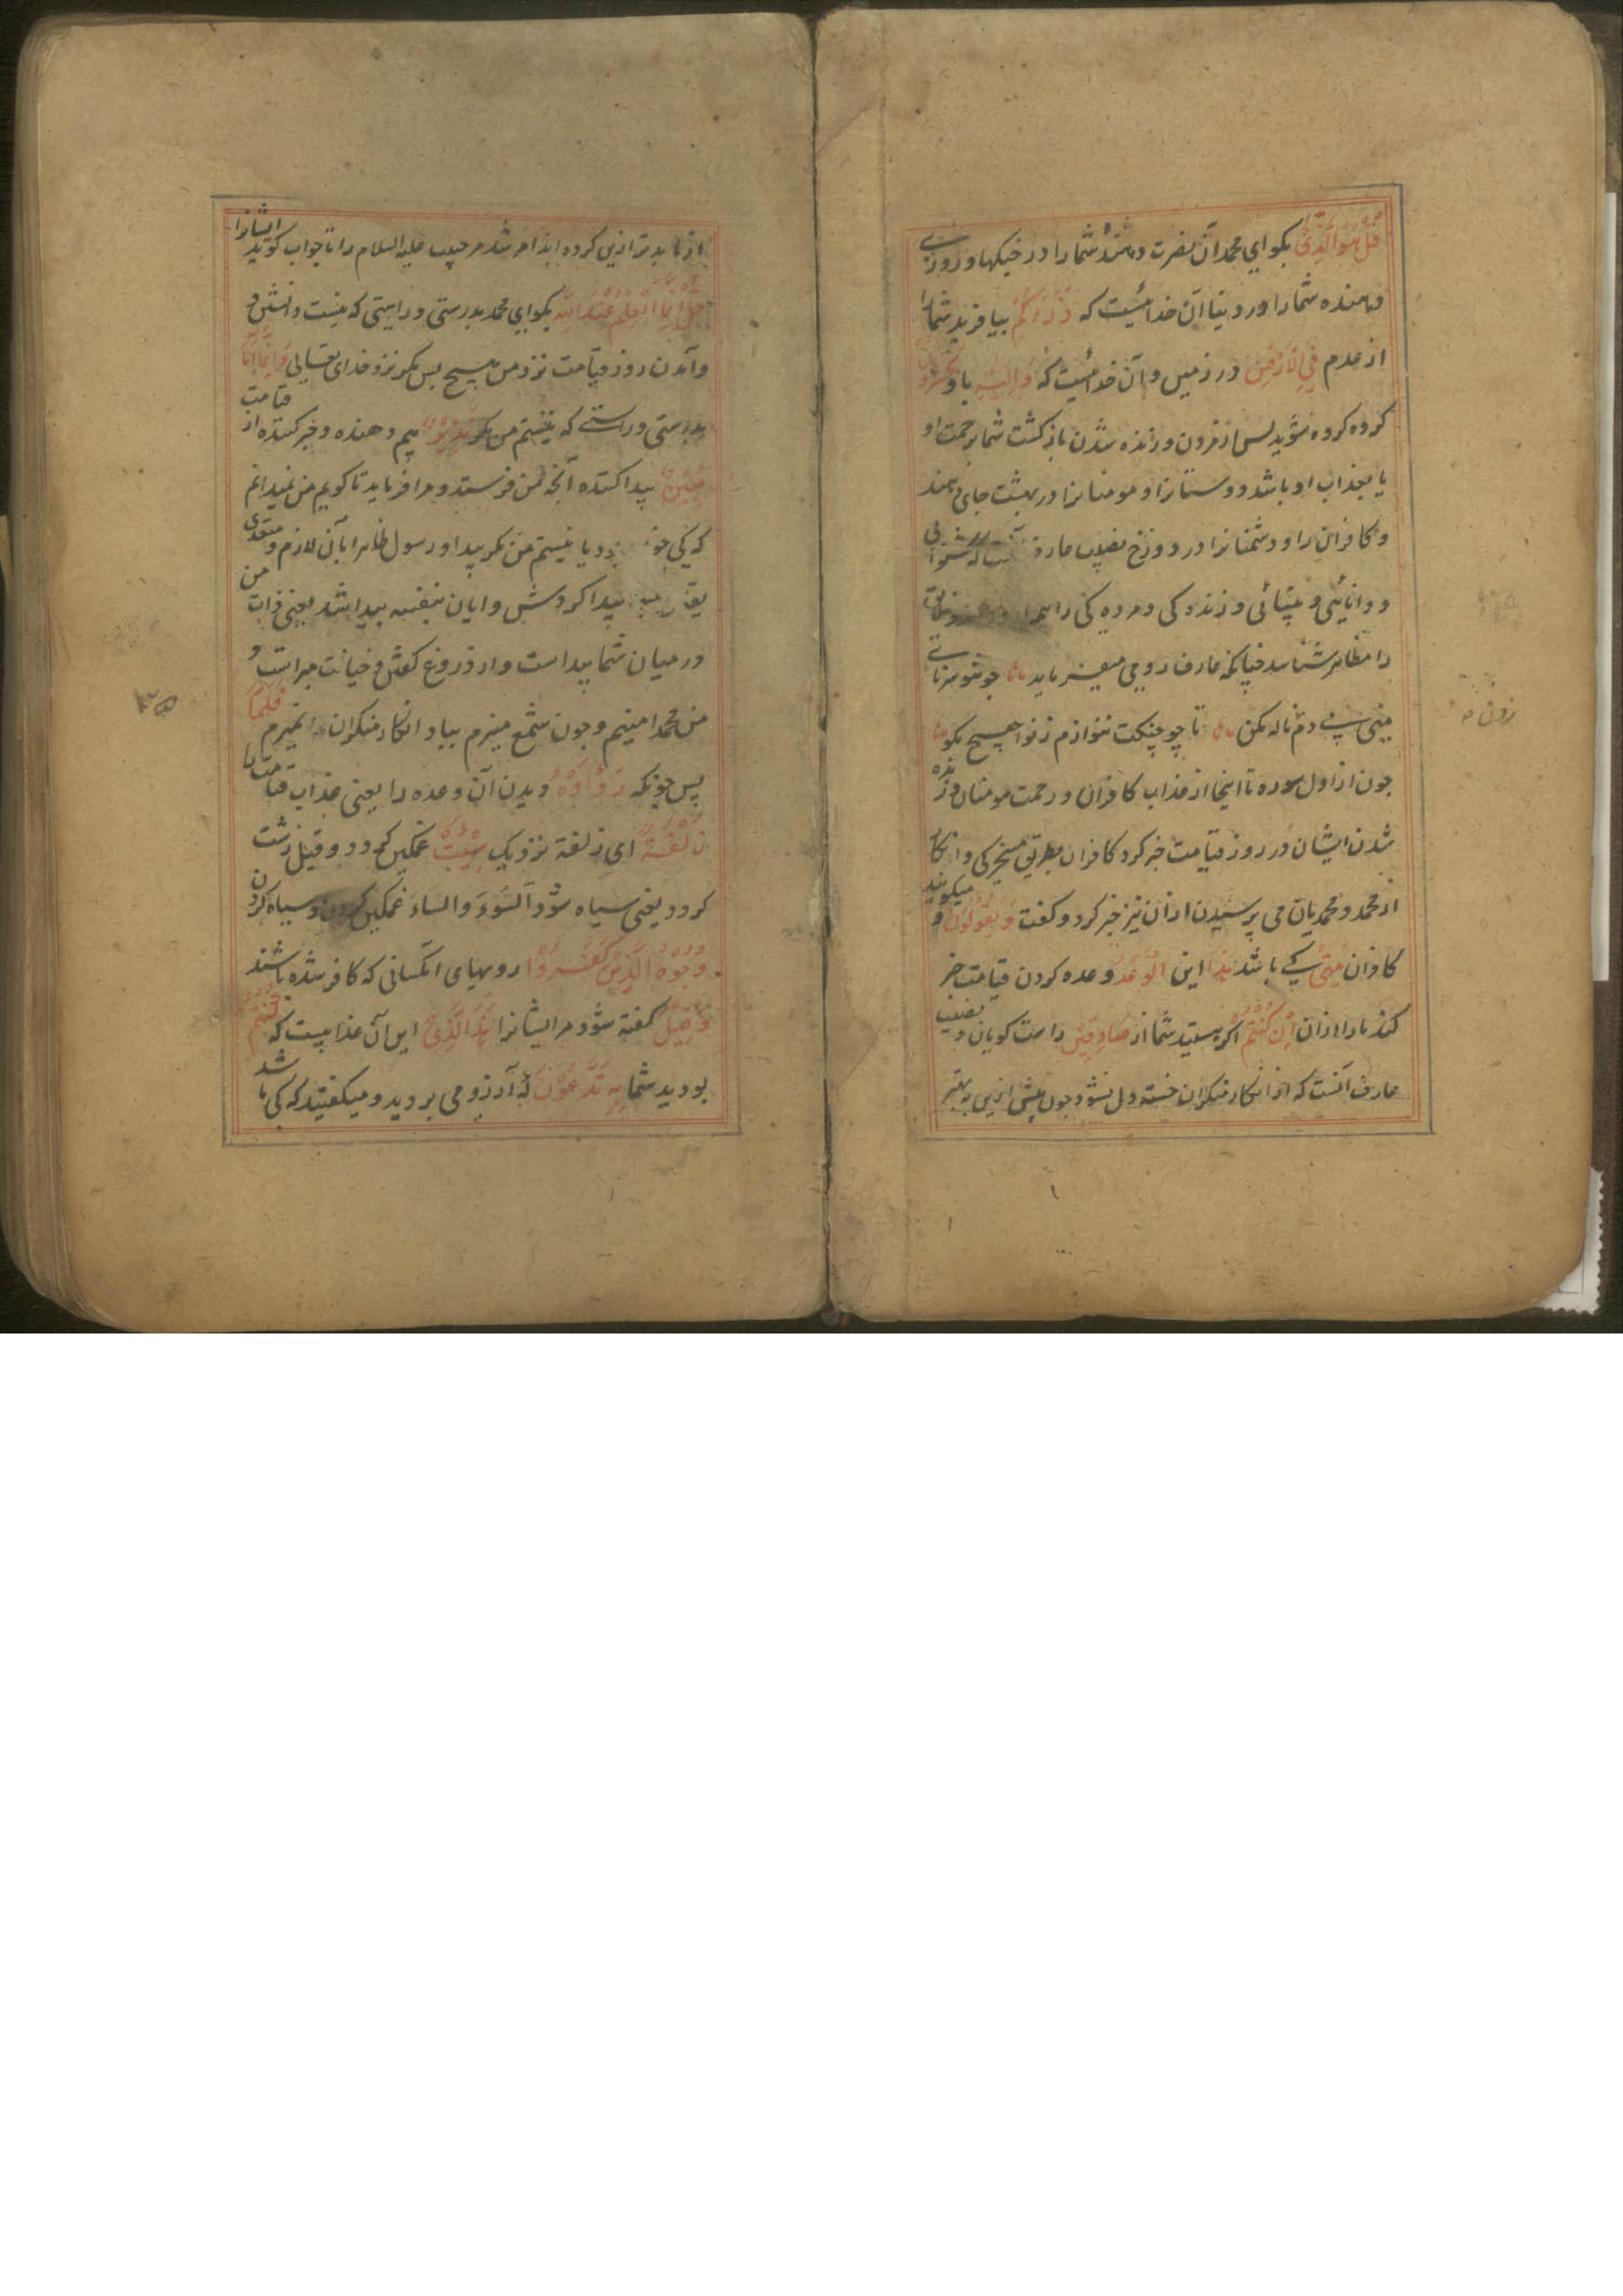 قُلْ هُوَ الَّذِیْ بکو ای محمد آن نصرت دهندهٔ شما را در جنکها و روزی
دهنده شما را در دنیا آن خدائیست که ذَرَءَکُمْ بیافرید شما را
از عدم فِی الْاَرْضِ در زمین و آن خدائیست که وَاِلَیْهِ باو تُحْشَرُوْنَ
کروه کروه شوید پس از مردن و زنده شدن بازکشت شما برحمت او
یا بعذاب او باشد دوستانرا و مومنانرا در بهشت جای دهند
و کافران را و دشمنانرا در دوزخ نصیب عارف آنست که شنوائی
و دانائی و بینائی و زنده کی و مرده کی را
را مظاهر شناسد چنانکه عارف رومی میفرماید چو تو سرنائی
منی بی دم ناله مکن تا چو چنکت ننوازم ز نوا هیچ مکو
چون از اول سوره تا اینجا از عذاب کافران و رحمت مومنان و زنده
شدن ایشان در روز قیامت خبر کرد کافران بطریق مسخرکی و انکار
از محمد و محمدیان می پرسیدن ازان نیز خبر کرد و کفت وَیَقُوْلُوْنَ و میکویند
کافران مَتٰی کی باشد هٰذَا این الْوَعْدُ وعده کردن قیامت خبر
کنند ما را ازان اِنْ کُنْتُمْ اکر هستید شما از صَادِقِیْنَ راست کویان و نصیب
عارف آنست که از انکار منکران خسته دل نشود چون پیش ازین به بهتر
از ما بدتر ازین کرده اند امر شد مر حبیب علیه السلام را تا جواب کوید ایشانرا
قُلْ اِنَّمَا الْعِلْمُ عِنْدَ اللّٰهِ بکو ای محمد بدرستی و راستی که نیست دانش
و آمدن روز قیامت نزد من هیچ بس مکر نزد خدای تعالی وَاِنَّمَا اَنَا
بدرستی و راستی که نیستم من مکر نَذِیْرٌ بیم دهنده و خبر کننده از قیامت
مُبِیْنٌ پیدا کننده آنچه بمن فرستد و مرا فرماید تا کویم من نمیدانم
که کی خواهد بود یا نیستم من مکر پیدا و رسول ظاهر ابان لازم و متعدی
پیدا کردش و ابان بنفسه پیدا شد یعنی ذات من
در میان شما پیداست و از دروغ کفتن و خیانت مبراست و
من محمد امینم و چون شمع میرم بباد انکار منکران نمیرم فَلَمَّا
پس چونکه رَاَوْهُ دیدن آن وعده را یعنی عذاب قیامت را
زُلْفَةً ای زلفة نزدیک سِیْئَتْ غمکین کردد و قیل زشت
کردد یعنی سیاه شود السوء والساء غمکین کردن و سیاه کردن
وُجُوْهُ الَّذِیْنَ کَفَرُوْا رویهای انکسانی که کافر شده باشند
وَقِیْلَ کفته شود مر ایشانرا هٰذَا الَّذِیْ این آن عذابیست که کُنْتُمْ
بودید شما بِهٖ تَدَّعُوْنَ که آرزو می بردید و میکفتید که کی باشد